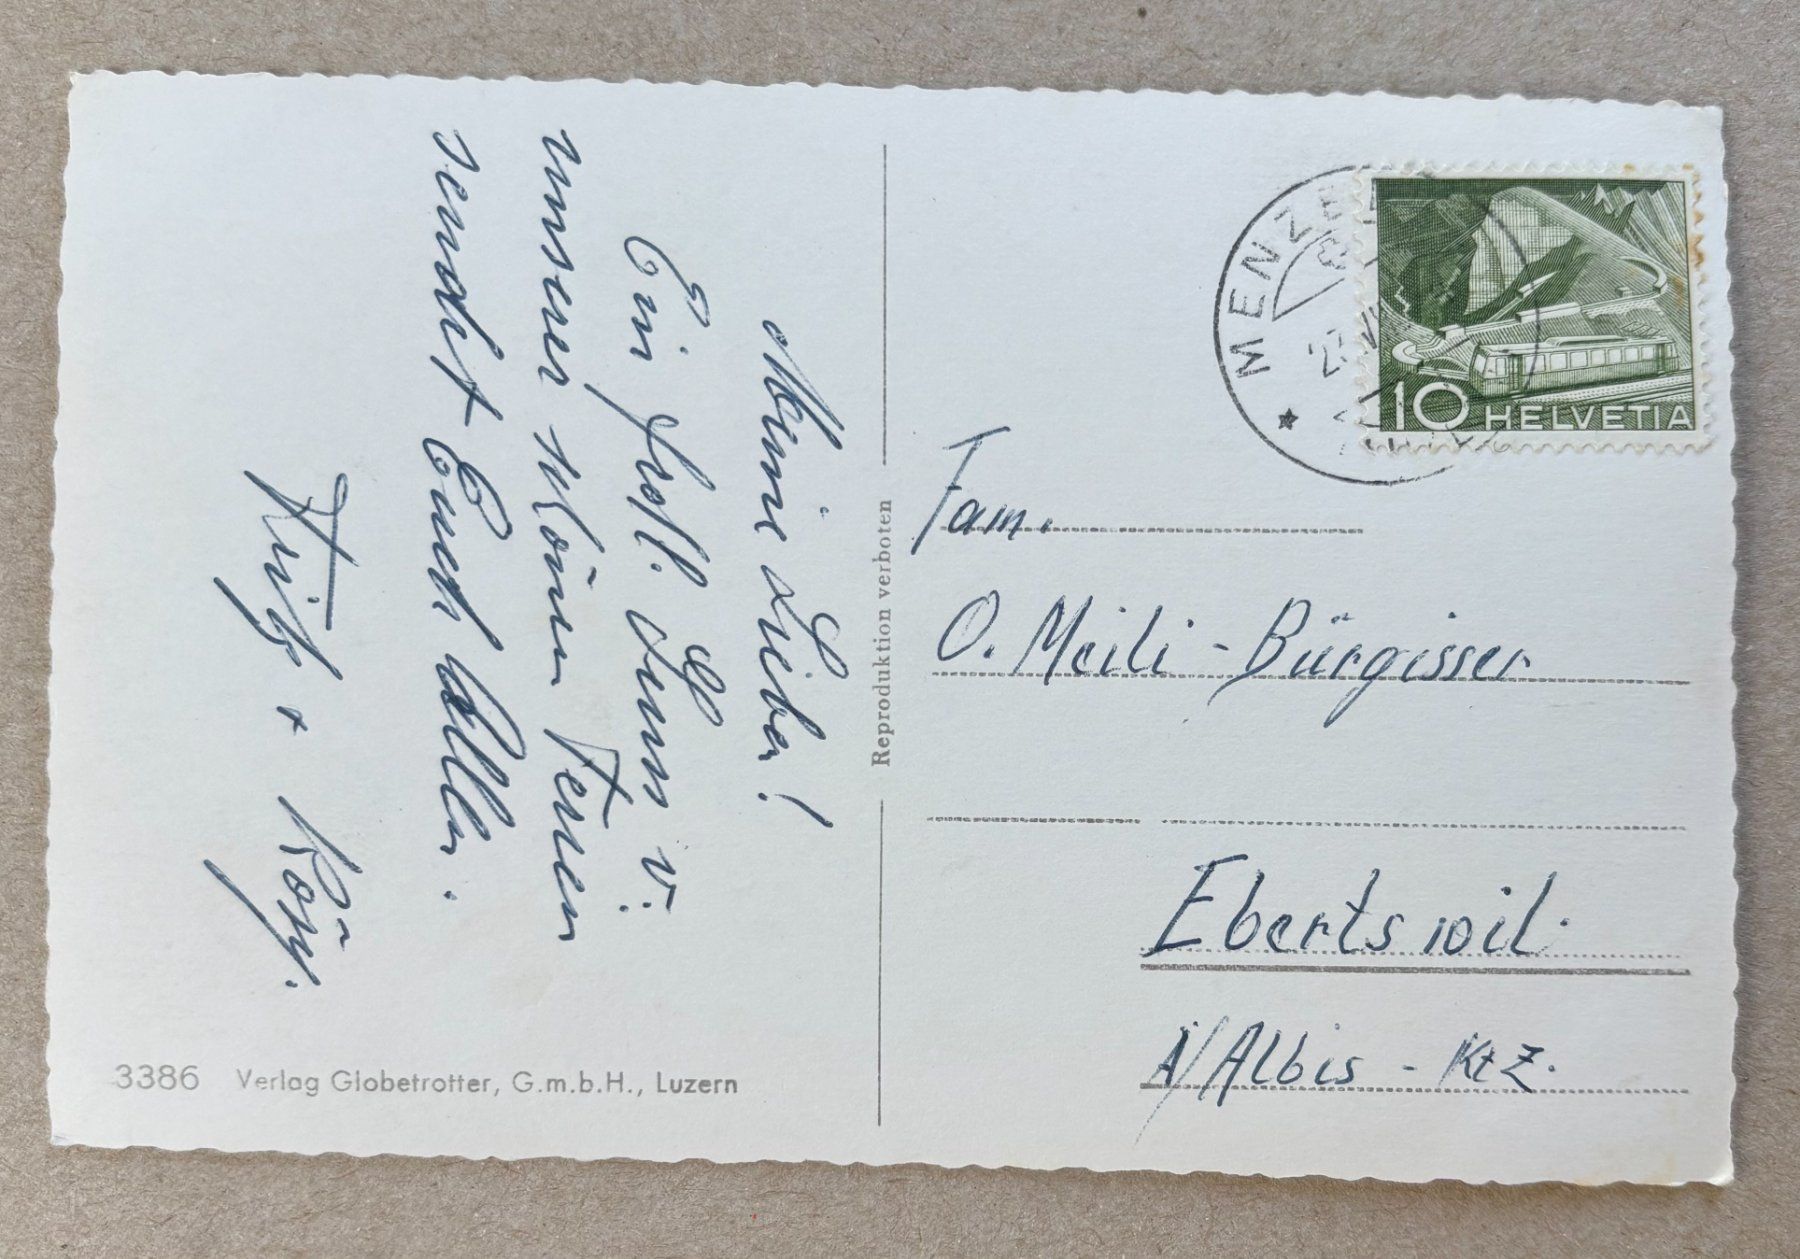 Meine Lieben!
Ein froh. v.
unseren Ferien
sendet Euch Allen.
Fritz + Rösy.
3386 Verlag Globetrotter, G.m.b.H., Luzern
Reproduktion verboten
MENZ
10 HELVETIA
Fam.
O. Meili - Bürgisser
Ebertswil.
A/Albis - Kt Z.